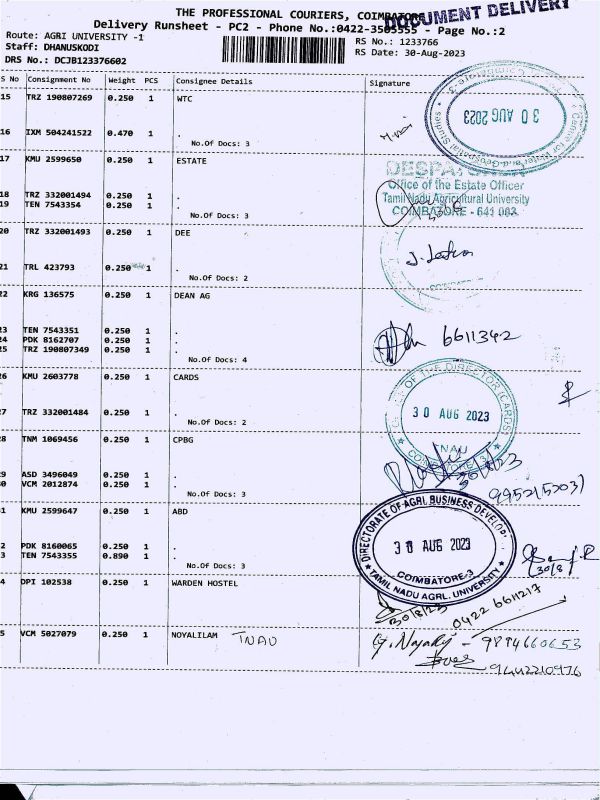 THE PROFESSIONAL COURIERS, COIMBATORE
DOCUMENT DELIVERY
Delivery Runsheet - PC2 - Phone No.:0422-3505555 - Page No.:2
Route: AGRI UNIVERSITY -1
RS No.: 1233766
Staff: DHANUSKODI
RS Date: 30-Aug-2023
DRS No.: DCJB123376602
S No Consignment No Weight PCS Consignee Details Signature
15 TRZ 190807269 0.250 1 WTC
30 AUG 2023
16 IXM 504241522 0.470 1 .
No.Of Docs: 3
17 KMU 2599650 0.250 1 ESTATE
Office of the Estate Officer
18 TRZ 332001494 0.250 1 .
Tamil Nadu Agricultural University
19 TEN 7543354 0.250 1 .
COIMBATORE - 641 003.
No.Of Docs: 3
20 TRZ 332001493 0.250 1 DEE
21 TRL 423793 0.250 1 .
No.Of Docs: 2
22 KRG 136575 0.250 1 DEAN AG
23 TEN 7543351 0.250 1 .
24 PDK 8162707 0.250 1 .
25 TRZ 190807349 0.250 1 .
6611342
No.Of Docs: 4
26 KMU 2603778 0.250 1 CARDS
OF THE DIRECTOR (CARDS)
30 AUG 2023
TNAU
COIMBATORE-3
27 TRZ 332001484 0.250 1 .
No.Of Docs: 2
28 TNM 1069456 0.250 1 CPBG
29 ASD 3496049 0.250 1 .
30 VCM 2012874 0.250 1 .
30/8/23
No.Of Docs: 3
31 KMU 2599647 0.250 1 ABD
DIRECTORATE OF AGRI. BUSINESS DEVELOP
30 AUG 2023
COIMBATORE-3
TAMIL NADU AGRL. UNIVERSITY
32 PDK 8160065 0.250 1 .
33 TEN 7543355 0.890 1 .
30/8
No.Of Docs: 3
34 DPI 102538 0.250 1 WARDEN HOSTEL
30/8/23
0422 6611217
35 VCM 5027079 0.250 1 NOYALILAM TNAU
9894660653
9442210976